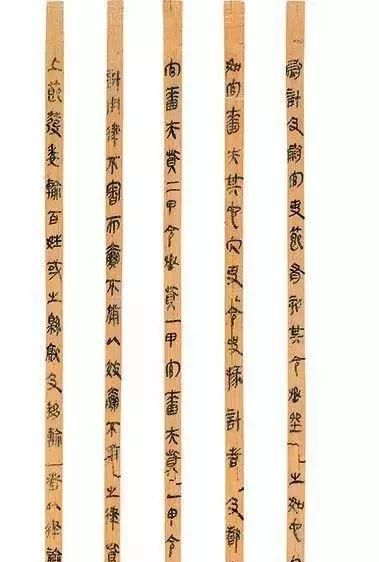 上節發委輸百姓或之縣就及移輸者以律論
計用律不審而贏不備以效贏不備之律貲
官嗇夫貲二甲令丞貲一甲官嗇夫貲一甲令
如官嗇夫其它冗吏令史掾計者及都
尉計及尉官吏節有劾其令丞坐之如它官